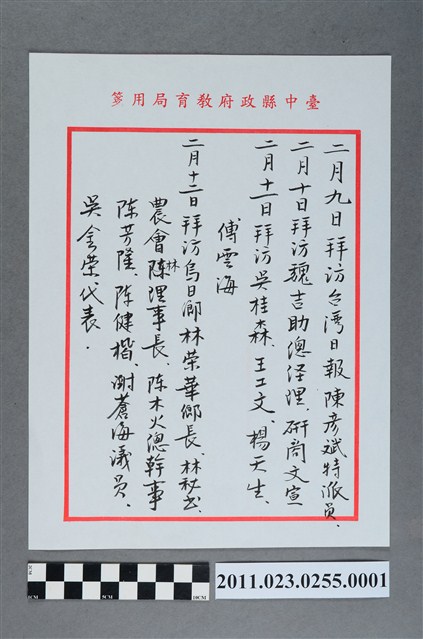 臺中縣政府教育局用箋
二月九日拜訪台湾日報陳彥斌特派員、
二月十日拜訪魏吉助總经理、研商文宣
二月十一日拜訪吳桂森、王工文、楊天生、
傅雲海
二月十二日拜訪烏日鄉林荣華鄉長、林秘书、
農會陈林理事長、陈木火總幹事
陈芳隆、陈健楷、謝蒼海議員、
吳金荣代表.
1CM
5CM
10CM
2011.023.0255.0001